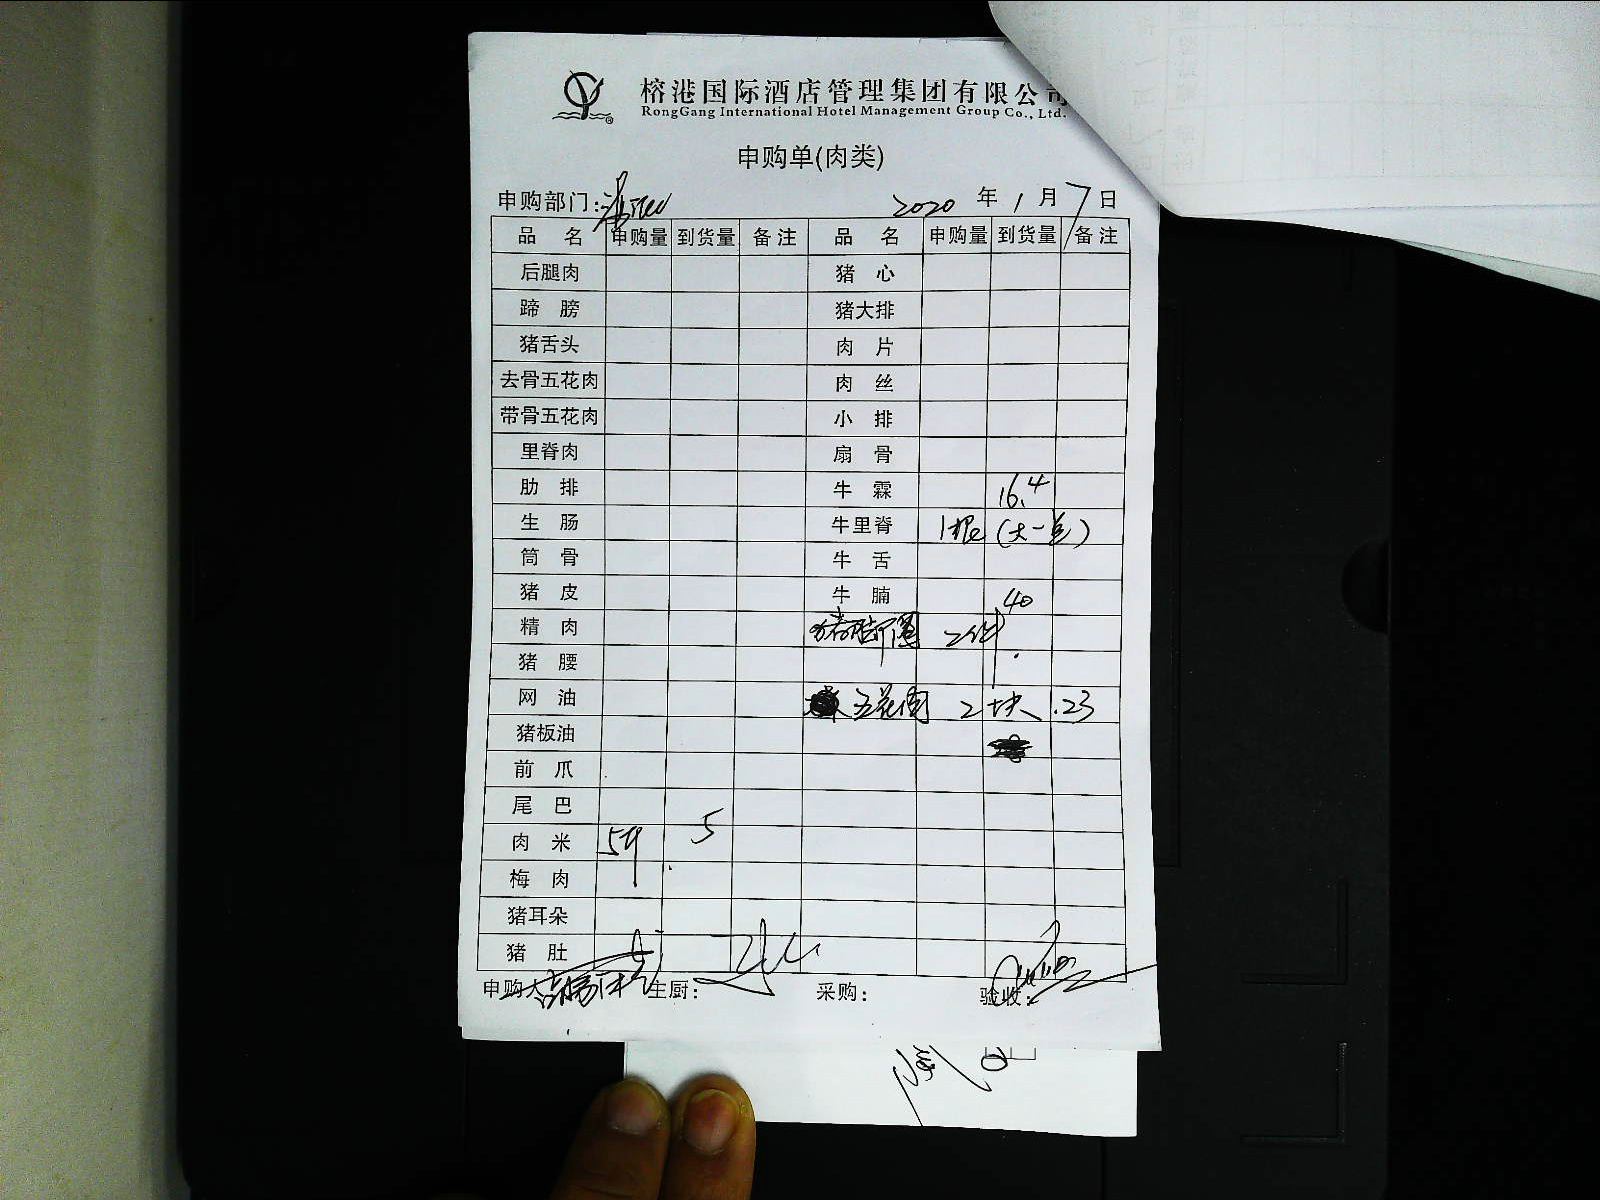 榕港国际酒店管理集团有限公司
RongGang International Hotel Management Group Co., Ltd.
申购单(肉类)
申购部门: 2020 年 1 月 7 日
品 名 申购量 到货量 备注 品 名 申购量 到货量 备注
后腿肉 猪 心
蹄 膀 猪大排
猪舌头 肉 片
去骨五花肉 肉 丝
带骨五花肉 小 排
里脊肉 扇 骨
肋 排 牛 霖 16.4
生 肠 牛里脊 1根 (大一点)
筒 骨 牛 舌
猪 皮 牛 腩 40
精 肉 猪脚圈 2件
猪 腰
网 油 五花肉 2块 .23
猪板油
前 爪
尾 巴
肉 米 5斤 5
梅 肉
猪耳朵
猪 肚
申购人 主厨: 采购: 验收: